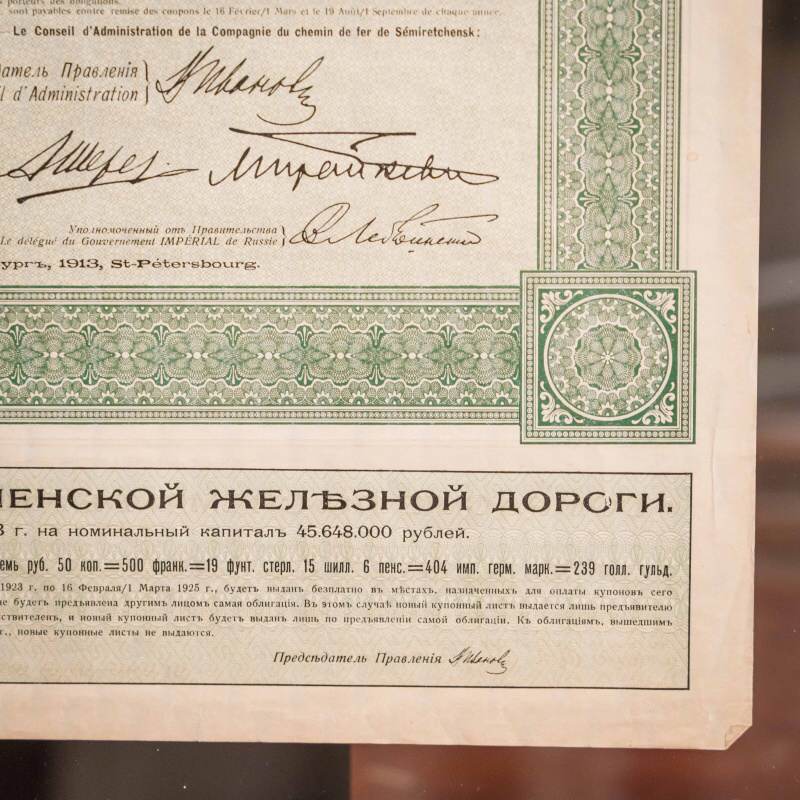 porteurs des obligations.
sont payables contre remise des coupons le 16 Février/1 Mars et le 19 Août/1 Septembre de chaque année.
Le Conseil d'Administration de la Compagnie du chemin de fer de Sémiretchensk:
датель Правленія
l d'Administration
Иванов
Уполномоченный отъ Правительства
Le délégué du Gouvernement IMPÉRIAL de Russie
ургъ, 1913, St-Pétersbourg.
ЧЕНСКОЙ ЖЕЛѢЗНОЙ ДОРОГИ.
3 г. на номинальный капиталъ 45.648.000 рублей.
емь руб. 50 коп.=500 франк.=19 фунт. стерл. 15 шилл. 6 пенс.=404 имп. герм. марк.=239 голл. гульд.
1923 г. по 16 Февраля/1 Марта 1925 г., будетъ выданъ безплатно въ мѣстахъ, назначенныхъ для оплаты купоновъ сего
не будетъ предъявлена другимъ лицомъ самая облигація. Въ этомъ случаѣ новый купонный листъ выдается лишь предъявителю
ствителенъ, и новый купонный листъ будетъ выданъ лишь по предъявленіи самой облигаціи. Къ облигаціямъ, вышедшимъ
г., новые купонные листы не выдаются.
Предсѣдатель Правленія Иванов